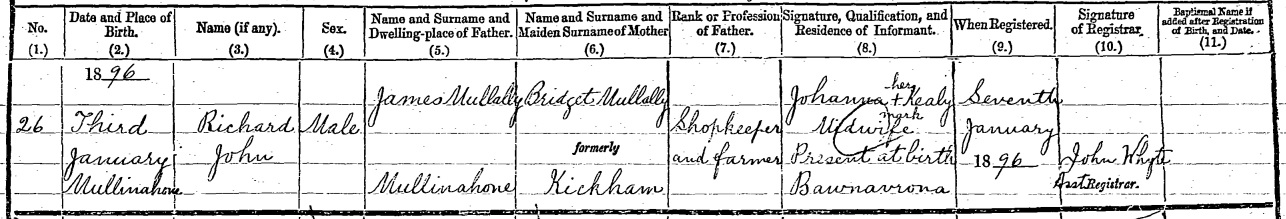 No. Date and Place of Birth. Name (if any). Sex. Name and Surname and Dwelling-place of Father. Name and Surname and Maiden Surname of Mother Rank or Profession of Father. Signature, Qualification, and Residence of Informant. When Registered. Signature of Registrar. Baptismal Name if added after Registration of Birth, and Date.
(1.) (2.) (3.) (4.) (5.) (6.) (7.) (8.) (9.) (10.) (11.)
1896
James Mullally Bridget Mullally Johanna her + Kealy Seventh
26 Third Richard Male Shopkeeper mark Midwife January
January John formerly and farmer Present at birth 1896 John Whyte
Mullinahone Mullinahone Kickham Bawnavrona Asst Registrar.